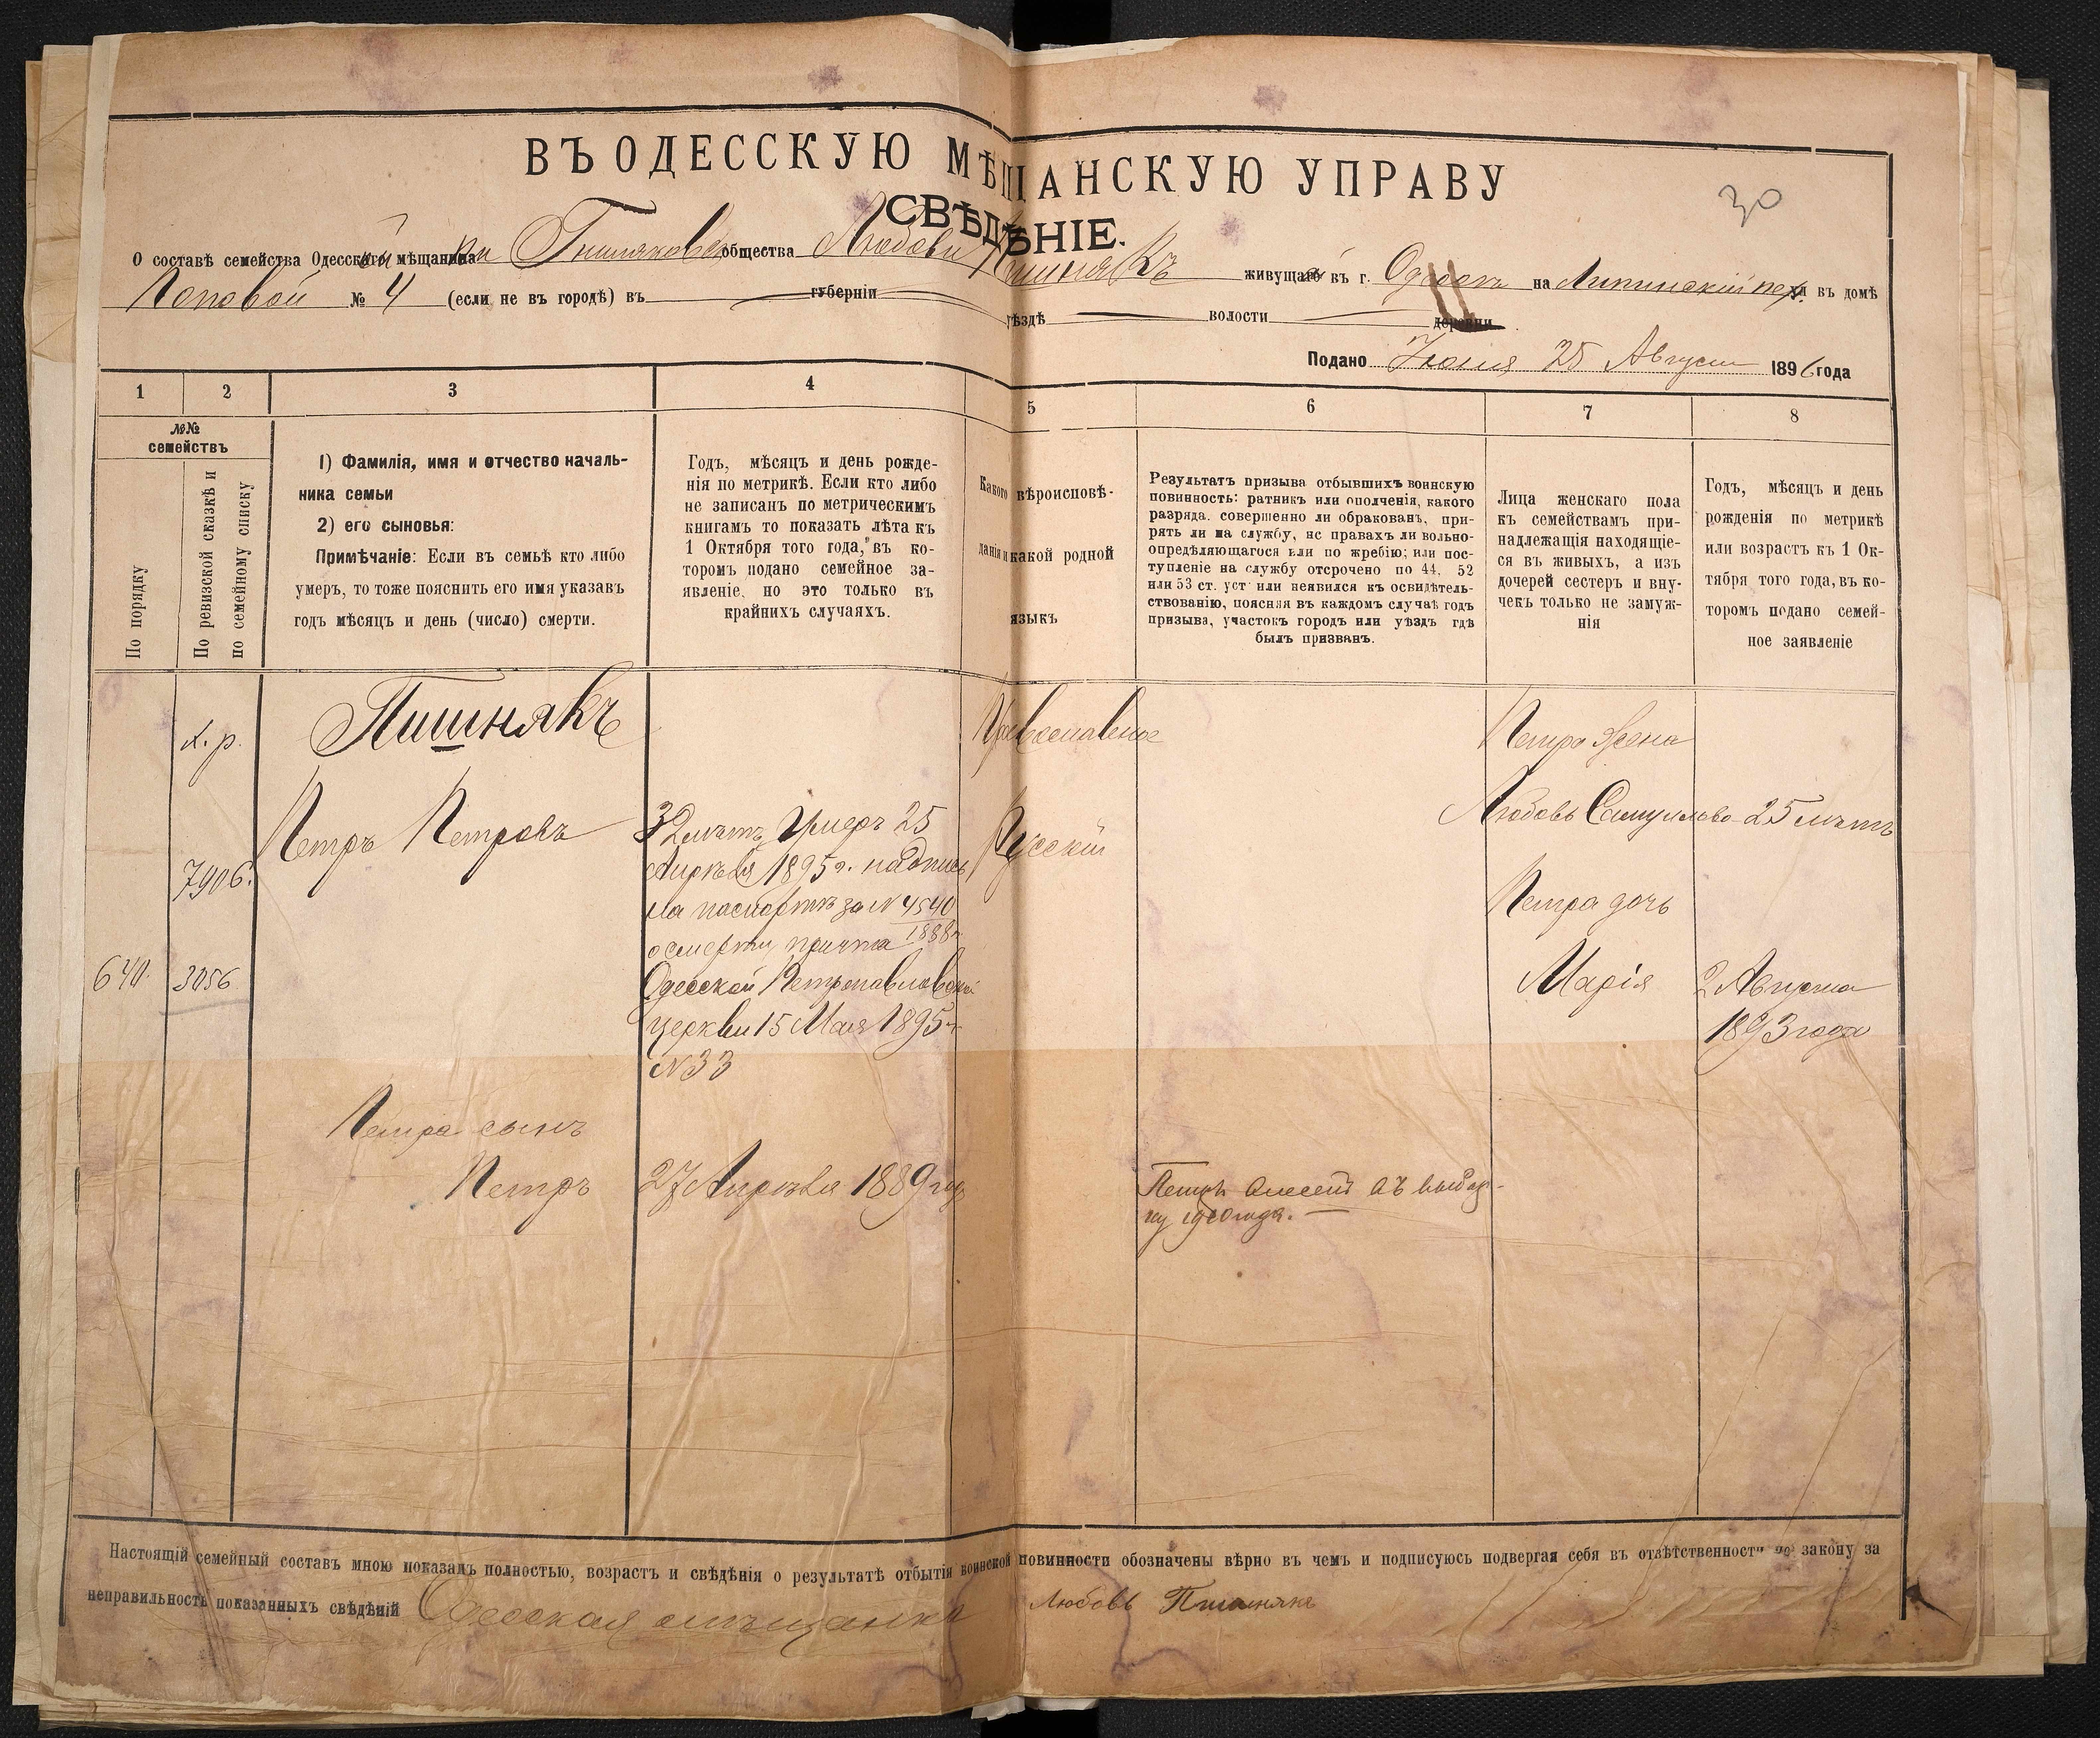 ВЪ ОДЕССКУЮ МѢЩАНСКУЮ УПРАВУ
30
СВѢДѢНІЕ.
О составѣ семейства Одесской мѣщанки общества Любови Пишнякъ живущаго въ г. Одессѣ на Липинскій пер. въ домѣ
Поповой № 4 (если не въ городѣ) въ губерніи
уѣздѣ волости деревни
Подано 25 Августа 1896 года
1 2 3 4 5 6 7 8
№№
семействъ
По порядку
По ревизской сказкѣ и
по семейному списку
1) Фамилія, имя и отчество началь-
ника семьи
2) его сыновья:
Примѣчаніе: Если въ семьѣ кто либо
умеръ, то тоже пояснить его имя указавъ
годъ мѣсяцъ и день (число) смерти.
Годъ, мѣсяцъ и день рожде-
нія по метрикѣ. Если кто либо
не записанъ по метрическимъ
книгамъ то показать лѣта къ
1 Октября того года, въ ко-
торомъ подано семейное за-
явленіе, но это только въ
крайнихъ случаяхъ.
Какого вѣроисповѣ-
данія и какой родной
языкъ
Результатъ призыва отбывшихъ воинскую
повинность: ратникъ или ополченія, какого
разряда. совершенно ли обракованъ, при-
рять ли на службу, нс правахъ ли вольно-
опредѣляющагося или по жребію; или пос-
тупленіе на службу отсрочено по 44, 52
или 53 ст. уст. или неявился къ освидѣтель-
ствованію, поясняя въ каждомъ случаѣ годъ
призыва, участокъ городъ или уѣздъ гдѣ
былъ призванъ.
Лица женскаго пола
къ семействамъ при-
надлежащія находящіе-
ся въ живыхъ, а изъ
дочерей сестеръ и вну-
чекъ только не замуж-
нія
Годъ, мѣсяцъ и день
рожденія по метрикѣ
или возрастъ къ 1 Ок-
тября того года, въ ко-
торомъ подано семей-
ное заявленіе
х. р.
Пишнякъ
Православное
Петра жена
Петръ Петровъ
32 лѣтъ Умеръ 25
Русскій
Любовь Самуилова 25 лѣтъ
7906.
Апрѣля 1895 г. надпись
на паспортѣ за № 4540
1888 г.
о смерти причта
Петра дочь
640. 3056
Одесской Петропавловской
Марія
2 Августа
церкви 15 Мая 1895 г.
1893 года
№ 33
Петра сынъ
Петръ
27 Апрѣля 1889 года
Петръ съ
1910 года.
Настоящій семейный составъ мною показанъ полностью, возрастъ и свѣдѣнія о результатѣ отбытія воинской повинности обозначены вѣрно въ чемъ и подписуюсь подвергая себя въ отвѣтственности по закону за
неправильность показанныхъ свѣдѣній Одесская мѣщанка Любовь Пишнякъ